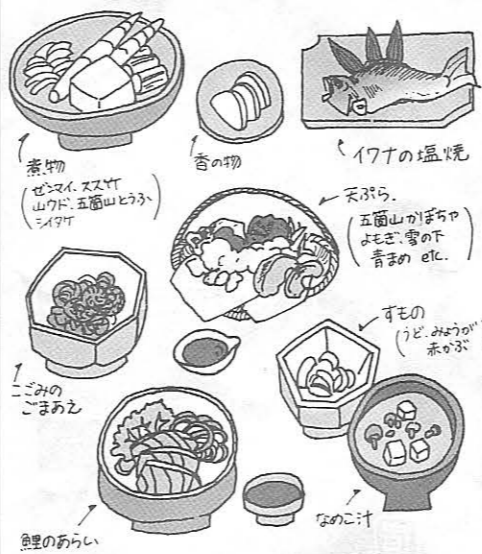 煮物
(ゼンマイ、ススタケ
山ウド、五箇山とうふ
シイタケ)
香の物
イワナの塩焼
天ぷら、
(五箇山かぼちゃ
よもぎ、雪の下
青まめ etc.)
すもの
(うど、みょうが
赤かぶ)
こごみの
ごまあえ
鯉のあらい
なめこ汁